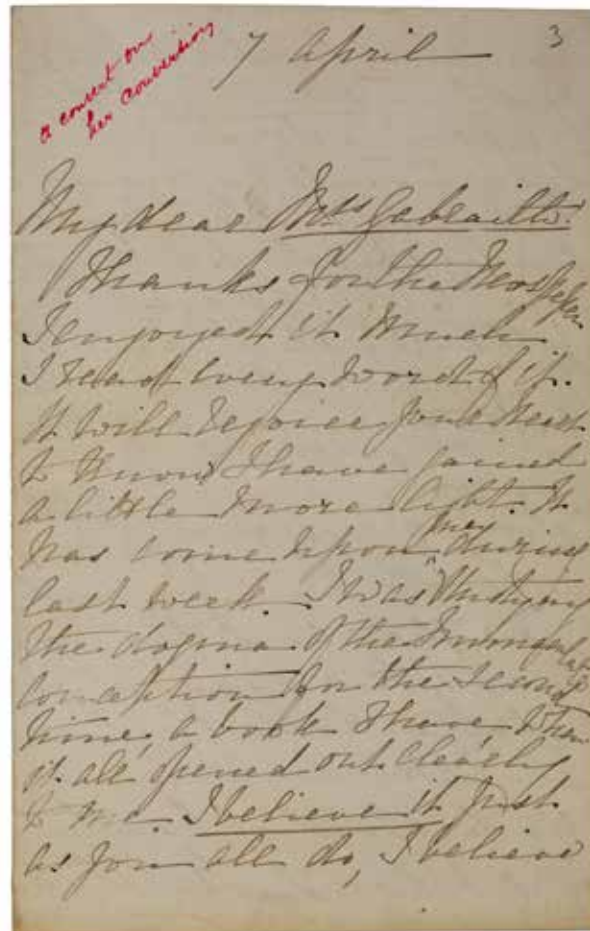 a convert on
her conversion
7 April
3
My dear Mrs
Thanks for the
I enjoyed it much
I read every word of it.
It will rejoice your heart
to know I have gained
a little more light. It
has come upon me during
last week. I was studying
the dogma of the Immaculate
Conception for the second
time, a book I have, when
it all opened out clearly
to me. I believe it just
as you all do, I believe